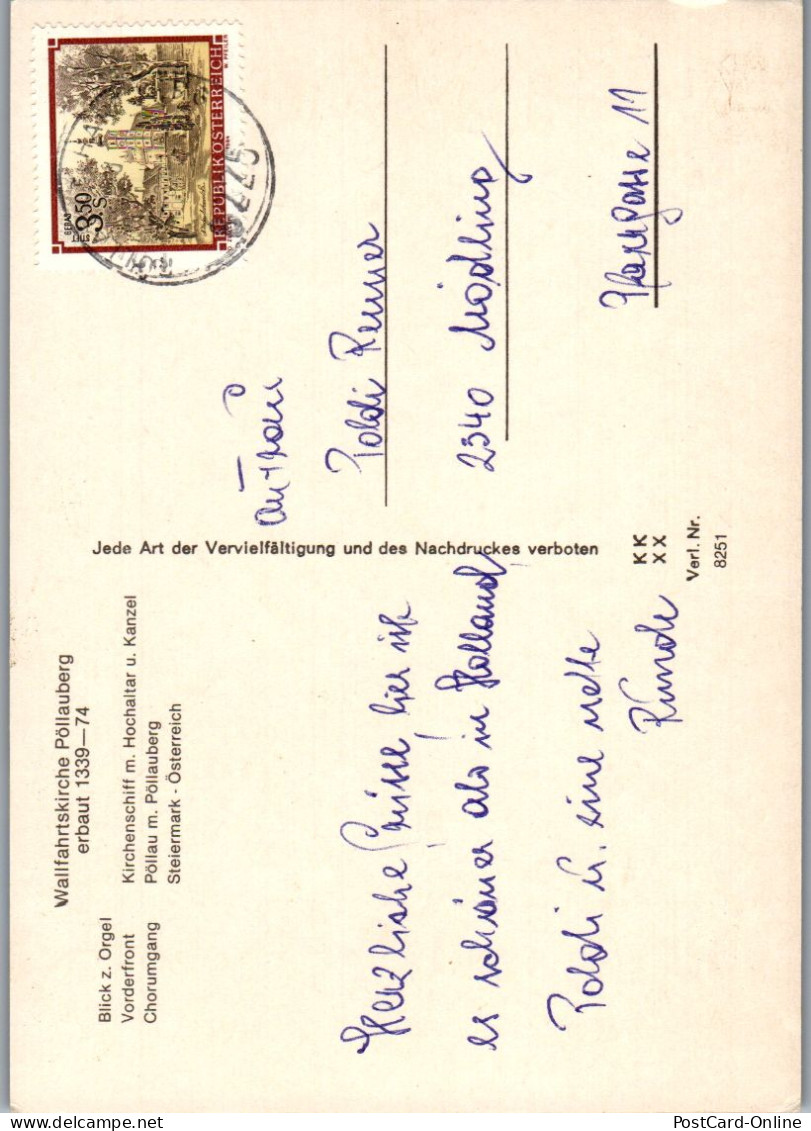 Wallfahrtskirche Pöllauberg
erbaut 1339—74
Blick z. Orgel
Vorderfront
Chorumgang
Kirchenschiff m. Hochaltar u. Kanzel
Pöllau m. Pöllauberg
Steiermark - Österreich
Herzliche Grüsse hier ist
es schöner als in Holland
Poldi u. eine nette
Runde
Jede Art der Vervielfältigung und des Nachdruckes verboten
K K
X X
Verl. Nr.
8251
STIFT
GERAS
S 3.50
REPUBLIK ÖSTERREICH
8225
Poldi Renner
2340 Mödling
11
PostCard-Online